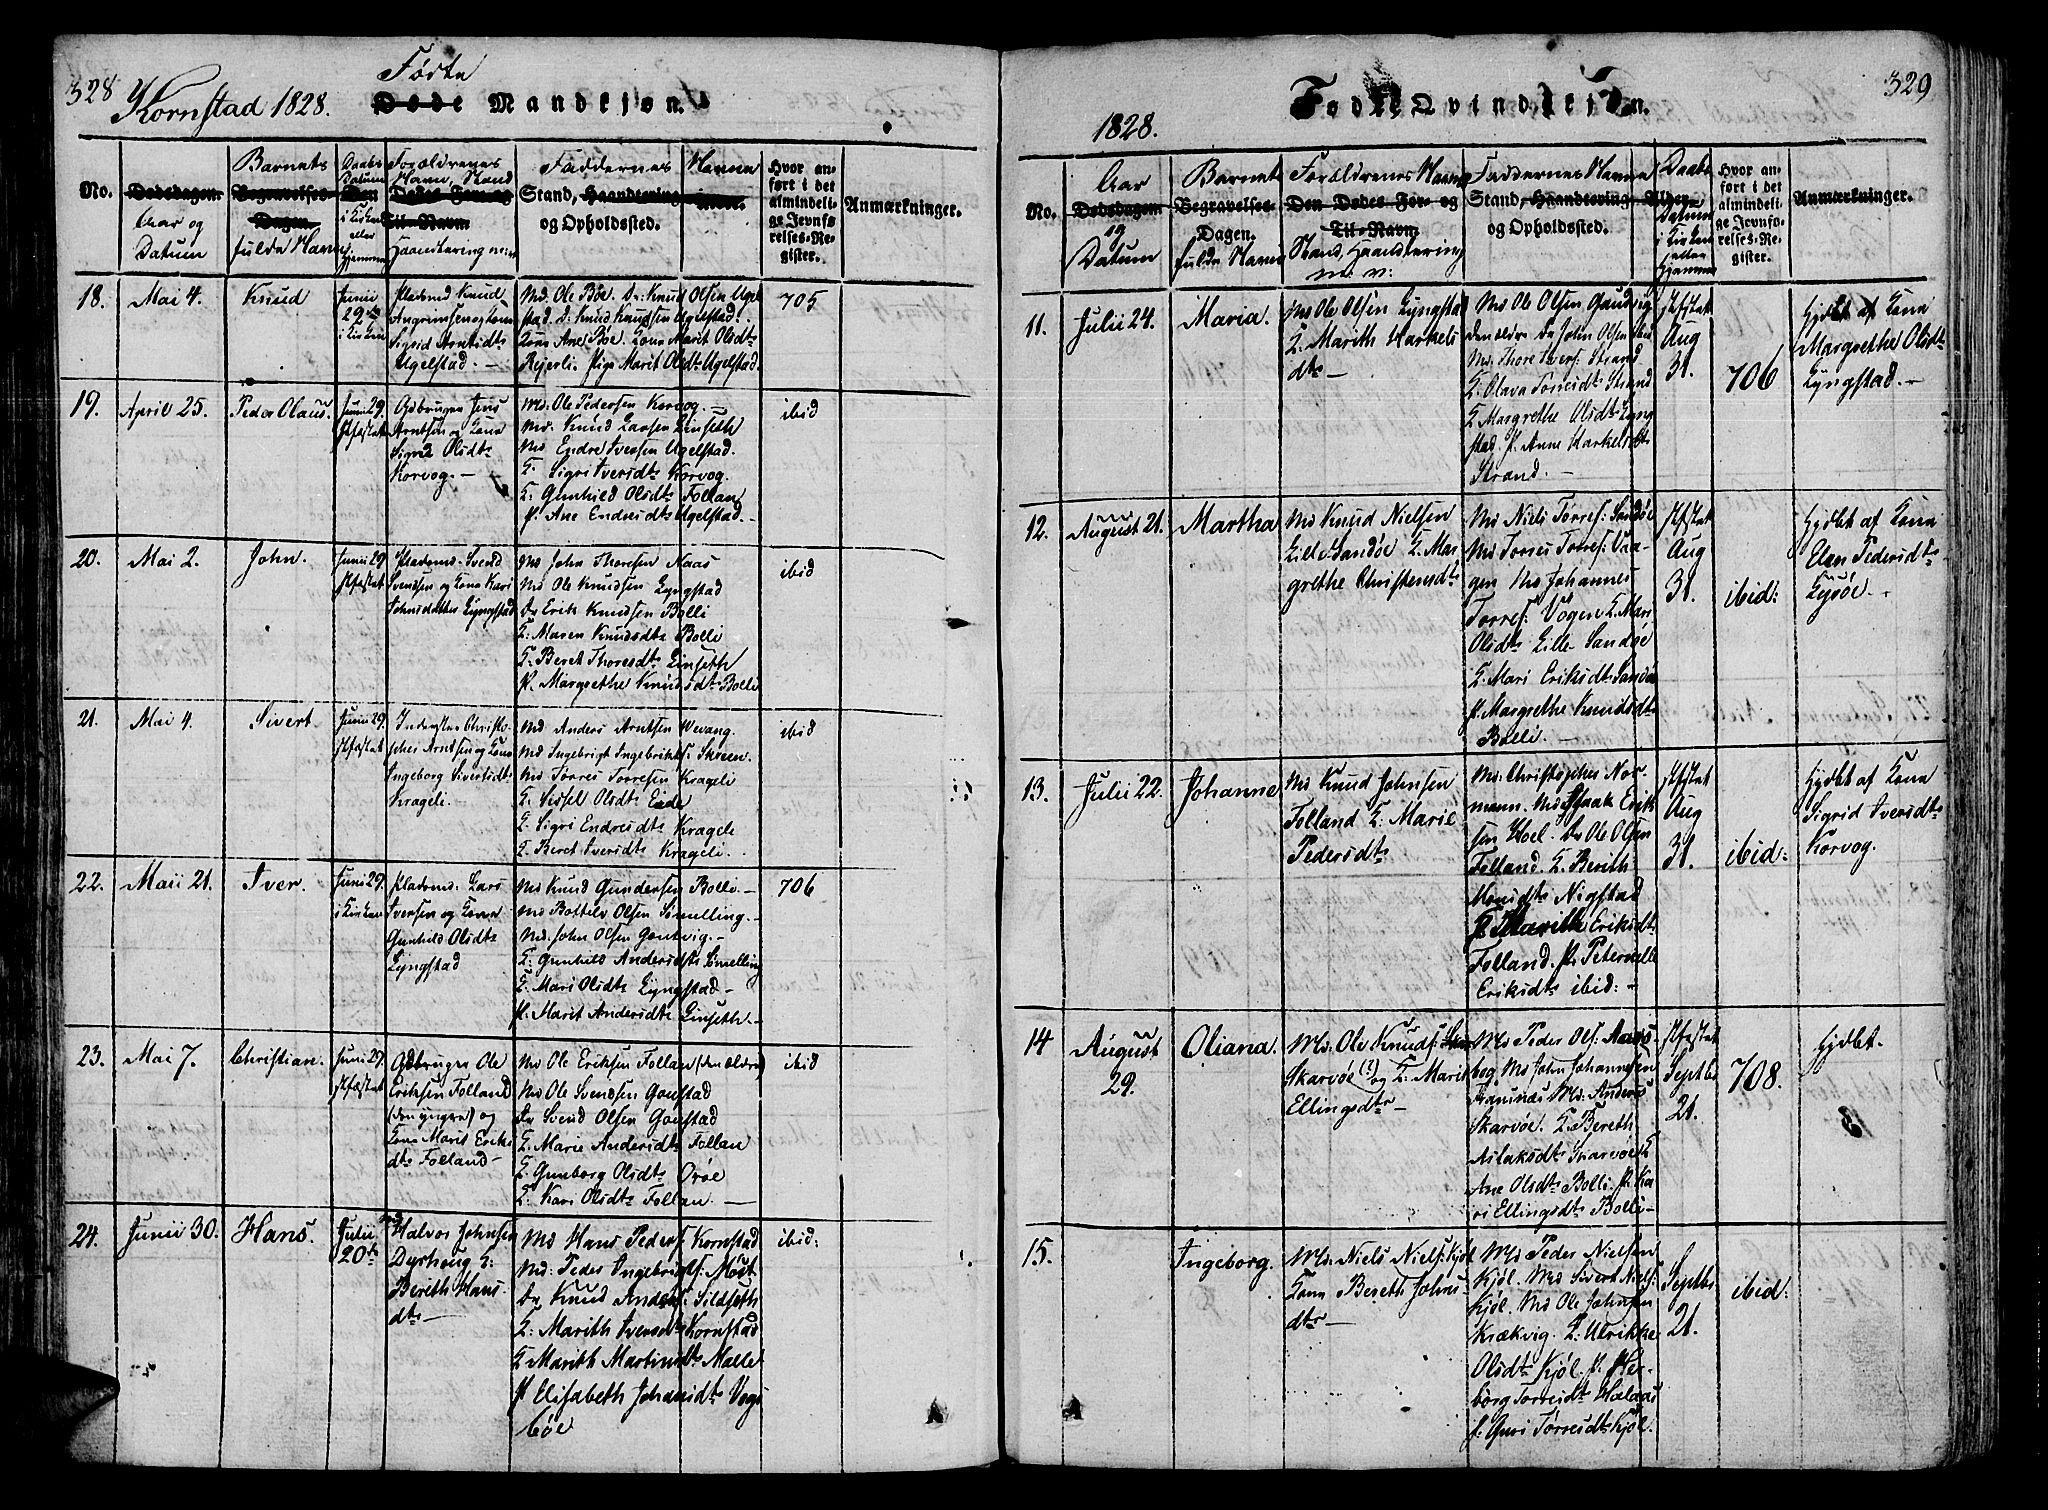 328
Kornstad 1828.
Födte
Døde Mandkjøn.
No.
Dødsdagen
Aar og
Datum
Barnets
Begravelses-
Dagen.
fulde Navn
Daabs
Datum
Den
i Kirken
eller
hjemme
Forældrenes
Navn, Stand
Dødes Fornavn
Til-Navn
Haandtering m: v:
Faddernes
Stand, Haandtering
og Opholdssted.
Navne
Alder.
Hvor an-
ført i det
almindeli-
ge Jevnfø-
relses-Re-
gister.
Anmærkninger.
18.
Mai 4.
Knud
Junii
29
i Kirken
Pladsmd Knud
Sigrid Arntsdtr
Ugelstad. -
Md. Ole Böe. Dr: Knud Olsen Ugel
stad. D: Knud Knudsen Ugelstad.
Kone Ane Böe. Kone Marit Olsdtr
Rejerli. Pige Marit Olsdtr Ugelstad.
705
19.
April 25.
Peder Olaus.
Junii 29.
Gdbruger Jens
Arntsen og Kone
Sigri Olsdtr
Korvog. -
Md. Ole Pedersen Korvog. -
Md. Knud Larsen Linseth
Md. Endre Iversen Ugelstad.
K. Sigri Iversdtr Korvog.
K: Gunhild Olsdtr Follan
P. Ane Endresdtr Ugelstad.-
ibid
20.
Mai 2.
John.
Junii 29
Pladsmd. Svend
Svendsen og Kone Kari
Johnsdatter Lyngstad
Md John Thoresen Naas
Md Ole Knudsen Lyngstad
Dr Erik Knudsen Bolli
K: Maren Knudsdtr Bolli
K. Beret Thoresdtr Linseth
P. Margrethe Knudsdtr Bolli
ibid
21.
Mai 4.
Sivert.
Junii 29.
Inderster Christo-
pher Arntsen og Kone
Ingeborg Sivertsdtr
Krageli. -
Md Anders Arntsen Wevang.
Md Ingebrigt Ingebrikts: Skreen.
Md Törres Torresen Krageli
K. Sissel Olsdtr Eide
K. Sigri Endresdtr Krageli
K Beret Iversdtr Krageli.
ibid
22.
Maii 21.
Iver.
Junii 29.
i Kirken
Pladsmd: Lars
Iversen og Kone
Gunhild Olsdtr
Lyngstad
Md Knud Gundersen Bolli -
Md Bottelv Olsen Smelling.-
Md. John Olsen Gautvig. -
K: Gunhild Andersdtr Smelling
K. Mari Olsdtr Lyngstad -
P. Marit Andersdtr Linseth.-
706
23.
Mai 7.
Christian.
Junii 29.
Gdbruger Ole
Eriksen Folland
(den yngre) og
Kone Marit Eriks
dtr Folland-
Md Ole Eriksen Follan (den ældre)
Md Ole Svendsen Goustad
Dr Svend Olsen Goustad
K. Marie Andersdtr Follan
K Gunborg Olsdtr Oröe
K. Kari Olsdtr Follan. -
ibid
24.
Junii 30.
Hans.
Julii
20de
Halvor Johnsen
Dyrhoug K:
Bereth Hans
dtr -
Md Hans Peders Kornstad
Md: Peder Ingebrigts: Möst
Dr Knud Anders: Sildseth
K: Marith Iversdtr Kornstad
K Marith Martinsdtr Malle
P Elisabeth Johansdtr Vogs
böe
ibid:
329
1828.
Fødte Qvindekjøn.
No.
Aar
Dødsdagen
og
Datum
Barnets
Begravelses-
Dagen.
fulde Navn
Forældrenes Navne
Den Dødes For- og
Til-Navn
Stand, Haandtering
m: v:
Faddernes Navne
Stand, Haandtering
og Opholdssted.
Daabs
Alder
Datum
i Kirken
eller
hjemme
Hvor an-
ført i det
almindeli-
ge Jevnfø-
relses-Re-
gister.
Anmærkninger.
11.
Julii 24.
Maria.
Md Ole Olsen Lyngstad
K. Marith Harkels
dtr -
Md Ole Olsen Gautvig
den ældre Dr John Olsen ibid
Md. Thore Ivers: Strand
K. Olava Torresdtr Strand
K Margrethe Olsdtr Lyng
stad P. Anne Harkelsdtr
Strand. -
Aug
31.
706
hjdbt af Kone
Margrethe Olsdtr
Lyngstad. -
12.
August 21.
Martha
Md Knud Nielsen
Lille Sandöe K. Mar
grethe Christensdtr
Md Niels Törres: Sandöe
Md Torres Torres: Vaa-
gen Md Johannes
Torres: Vogen K. Mari
Olsdtr Lille Sandöe
K. Mari Eriksdtr Sandö
P. Margrethe Knudsdtr
Bolli. -
Aug
31.
ibid:
hjdbt af Kone
Elen Pedersdtr
Lysöe. -
13.
Julii 22.
Johanne
Md Knud Johnsen
Folland K: Marie
Pedersdtr
Md: Christopher Nor-
mann. Md Isaak Erik
sen Hoel. Dr Ole Olsen
Folland. K. Berith
Monsdtr Nigstad
P Marith Eriksdtr
Folland. P. Peternelle
Eriksdtr ibid: -
Aug
31.
ibid:
hjdbt af Kone
Sigrid Iversdtr
Korvog.
14
August
29.
Oliana.
Md. Ole Knuds:
Skarvöe (?) og K. Marit
Ellingsdtr -
Md: Peder Ols: Aars-
bog Md John Johannesen
Framnæs Md. Anders
Skarvöe. K Bereth
Aslaksdtr Skarvöe K
Ane Olsdtr Bolli. P. Ka
ri Ellingsdtr Bolli-
Septbr
21.
708.
hjdbt.
15.
Ingeborg.
Md. Niels Niels: Kjöl
Kone Bereth Johns
dtr -
Md. Peder Nielsen
Kjöl. Md Sivert Niels:
Kjöl. Md Ole Johnsen
Krækvig. K: Ulrikke
Olsdtr Kjöl. P. Her-
borg Torresdtr Hælaas
P. Guri Törresdtr Kjöl.
Septbr
21.
ibid: